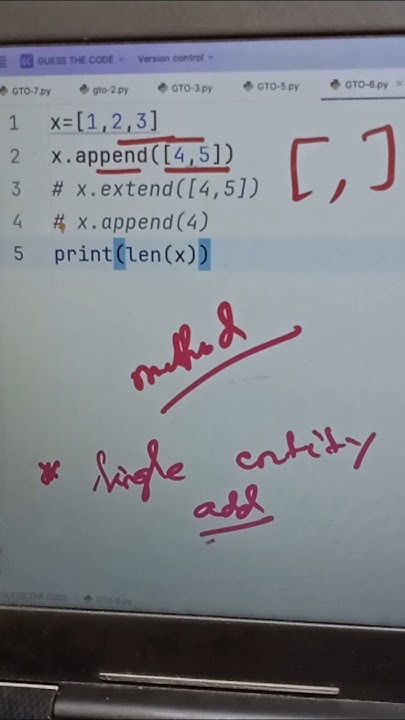 GUESS THE CODE
Version control
GTO-7.py
gto-2.py
GTO-3.py
GTO-5.py
GTO-6.py
1 x=[1,2,3]
2 x.append([4,5])
3 # x.extend([4,5])
4 # x.append(4)
5 print(len(x))
[,]
method
* Single entity
add
GUESS THE CODE
GTO-6.py